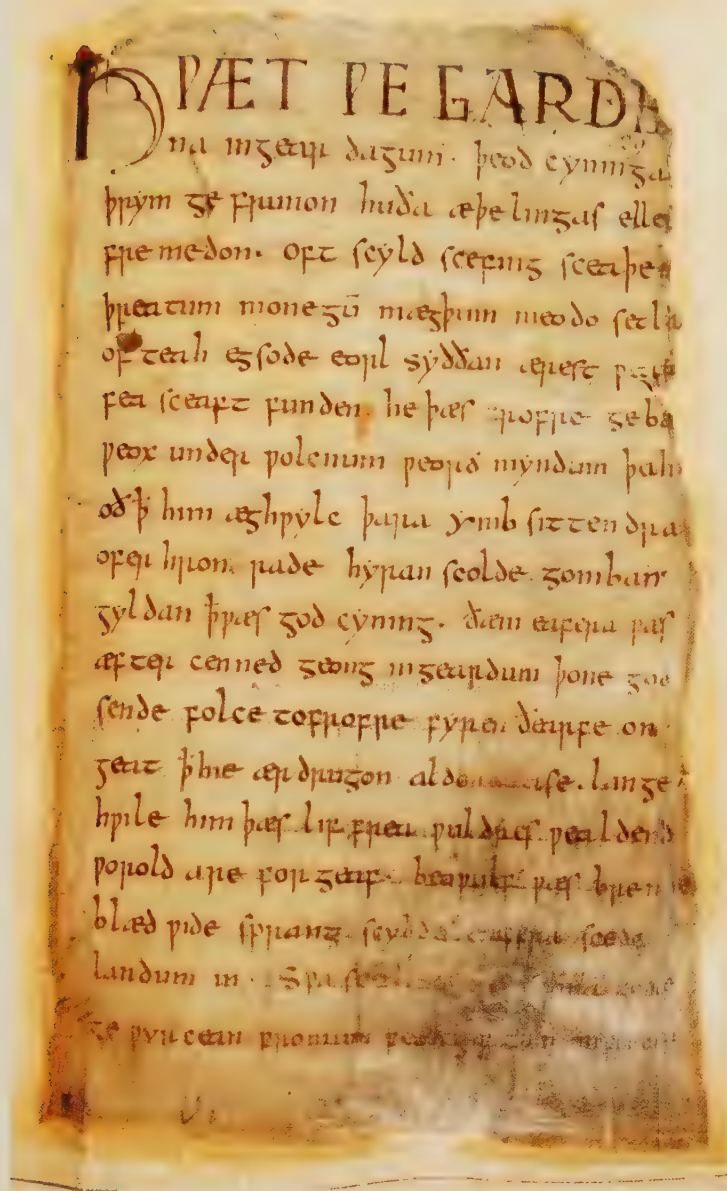 HǷÆT ǷE GARDE
na ingear dagum. þeod cyninga
þrym ge frunon huða æþelingas elle
fremedon. oft scyld scefing sceaþe
þreatum monegū mægþum meodo setla
of teah egsode eorl syððan ærest
fea sceaft funden. he þæs frofre geba
ƿeox under ƿolcnum ƿeorð myndum þah
oð ꝥ him æghƿylc þara ymb sittendra
ofer hron rade hyran scolde gomban
gyldan ꝥ ƿæs god cyning. ðæm eafera ƿæs
æfter cenned geong ingeardum þone god
sende folce tofrofre fyren ðearfe on
geat ꝥ hie ær drugon aldor ase. lange
hƿile him þæs lif frea ƿuldres ƿealdend
ƿorold are forgeaf. beoƿulf ƿæs breme
blæd ƿide sprang scyldes eafera scede
landum in. Sƿa sceal
ge ƿyrcean fromum